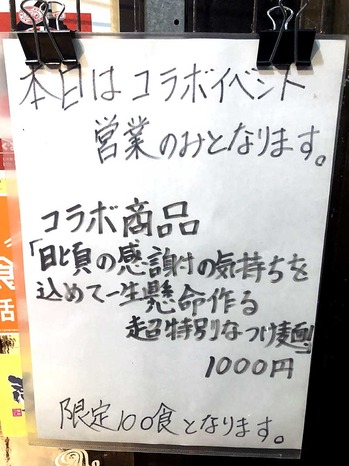 本日はコラボイベント
営業のみとなります。
コラボ商品
「日頃の感謝の気持ちを
込めて一生懸命作る
超特別なつけ麺」
1000円
限定100食となります。
食
話